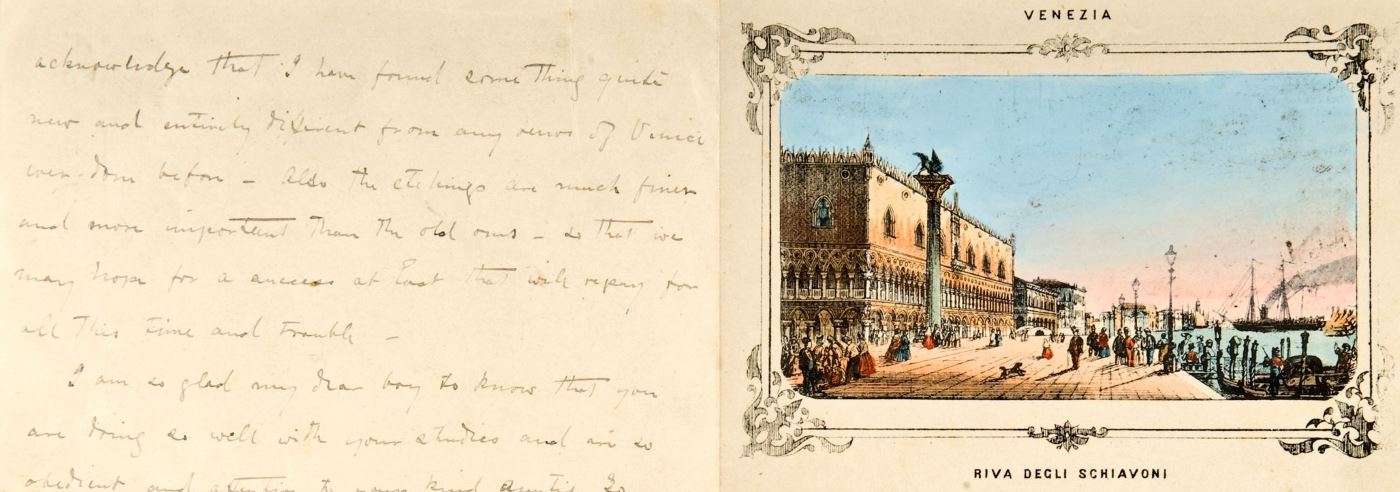 acknowledge that I have found something quite
new and entirely different from any views of Venice
ever done before – Also the etchings are much finer
and more important than the old ones – so that we
may hope for a success at last that will repay for
all this time and trouble –
I am so glad my dear boy to know that you
are doing so well with your studies and are so
obedient and attentive to your kind Auntie. So
VENEZIA
RIVA DEGLI SCHIAVONI